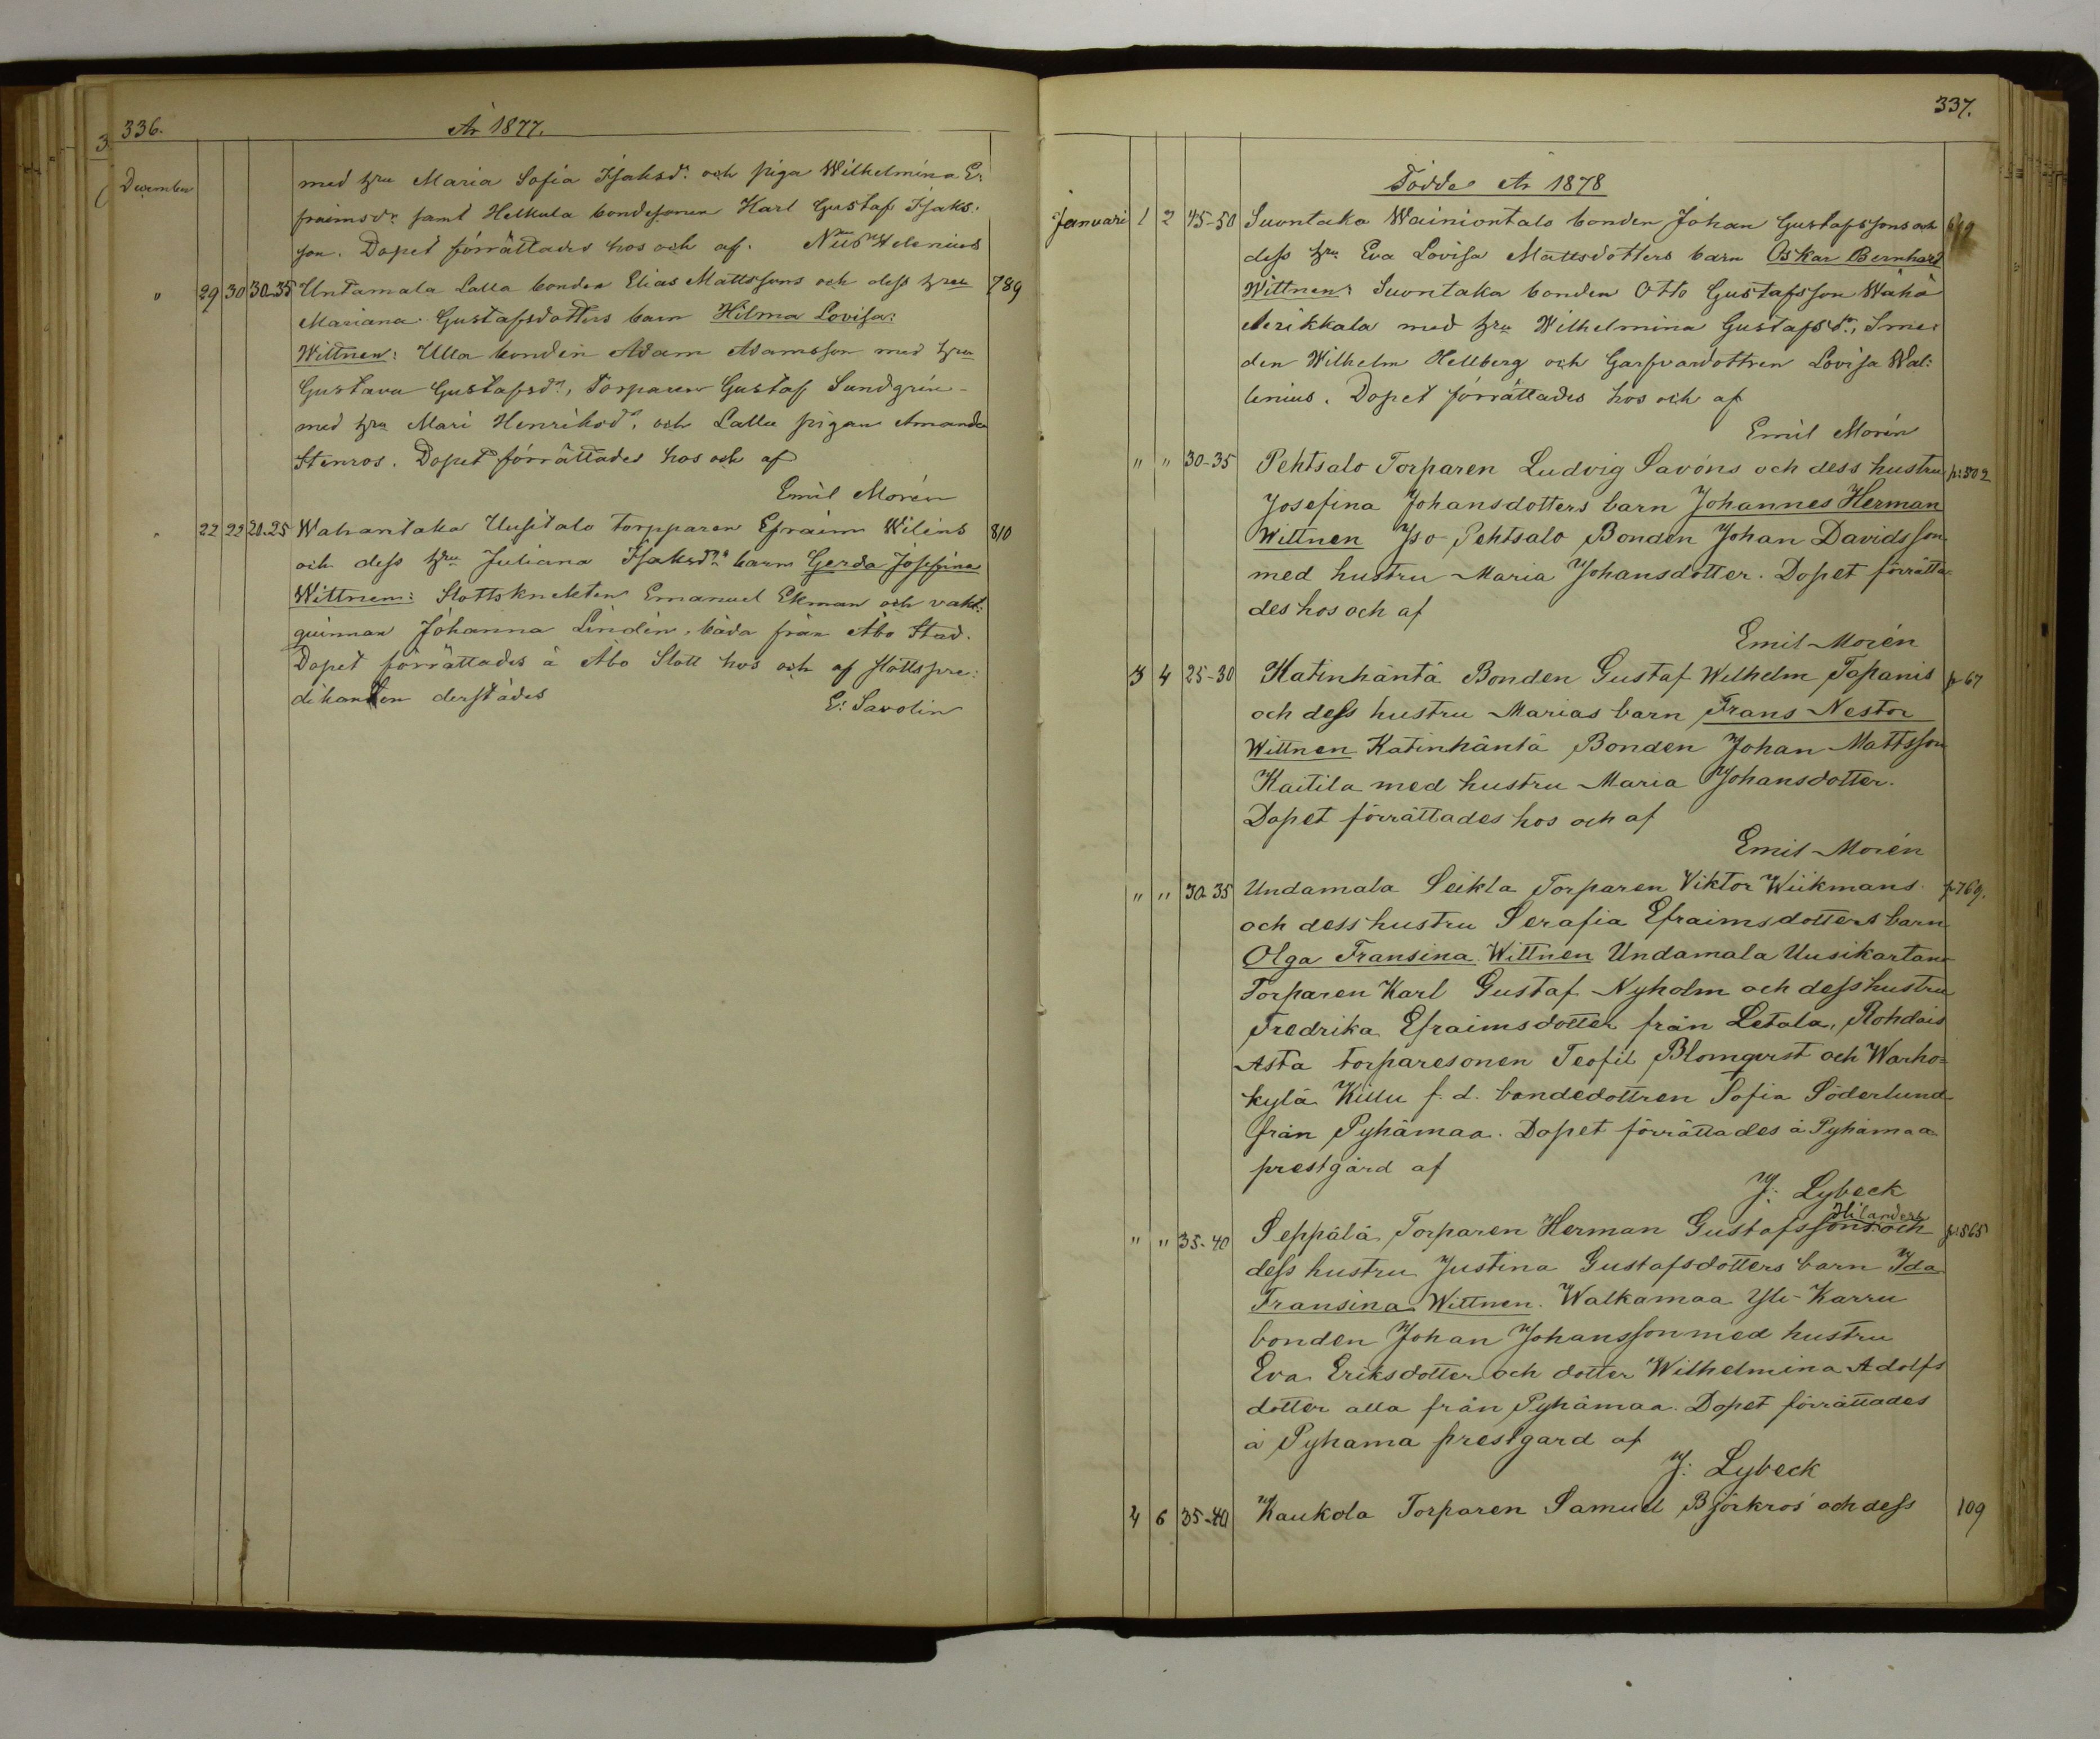 336.
År 1877.
December
med hru Maria Sofia Isaksdr. och piga Wilhelmina E:
fraimsdr samt Helkula bondesonen Karl Gustaf Isaks:
son. Dopet förrättades hos och af. Helenius
" 29 30 30-35 Untamala Lalla bonden Elias Mattssons och dess hru 789
Mariana Gustafsdotters barn Hilma Lovisa:
Wittnen: Ulla bonden Adam Adamsson med hru
Gustava Gustafsdr, Torparen Gustaf Sundgrén
med hru Mari Henriksdr, och Lalla pigan Amanda
Stenros. Dopet förrättades hos och af
Emil Morén
" 22 22 20-25 Wahantaka Uusitalo torpparen Efraim Wiléns 810
och dess hru Juliana Isaksdrs barn Gerda Josefina
Wittnen: Slottsknekten Emanuel Ekman och vakt:
quinnan Johanna Lindén, båda från Åbo Stad.
Dopet förrättades å Åbo Slott hos och af slottspre:
dikanten derstädes
E: Savolin
337.
Födde År 1878
Januari 1 2 45-50 Suontaka Wainiontalo bonden Johan Gustafssons och
dess hru Eva Lovisa Mattsdotters barn Oskar Bernhard
Wittnen: Suontaka bonden Otto Gustafsson Wähä
Äerikkala med hru Wilhelmina Gustafsdr., Sme:
den Wilhelm Hellberg och Garfvardottren Lovisa Wal:
lenius. Dopet förrättades hos och af
Emil Morén
" " 30-35 Pehtsalo Torparen Ludvig Savóns och dess hustru p:302
Josefina Johansdotters barn Johannes Herman
Wittnen Iso Pehtsalo Bonden Johan Davidsson
med hustru Maria Johansdotter. Dopet förrätta
des hos och af
Emil Morén
3 4 25-30 Katinhäntä Bonden Gustaf Wilhelm Tapanis p 67
och dess hustru Marias barn Frans Nestor
Wittnen Katinhäntä Bonden Johan Mattsson
Kaitila med hustru Maria Johansdotter.
Dopet förrättades hos och af
Emil Morén
" " 30-35 Undamala Seikla Torparen Viktor Wiikmans p 769.
och dess hustru Serafia Efraimsdotters barn
Olga Fransina Wittnen Undamala Uusikartano
Torparen Karl Gustaf Nyholm och dess hustru
Fredrika Efraimsdotter från Letala, Rohdais
Asta torparesonen Teofil Blomqvist och Warho=
kylä Killu f. d. bondedottren Sofia Söderlund
från Pyhämaa. Dopet förrättades å Pyhämaa
prestgård af
J. Lybeck
Hilanders
" " 35-40 Seppälä Torparen Herman Gustafssons och p:565
dess hustru Justina Gustafsdotters barn Ida
Fransina Wittnen. Walkamaa Yli-Karru
bonden Johan Johansson med hustru
Eva Eriksdotter och dotter Wilhelmina Adolfs
dotter alla från Pyhämaa. Dopet förrättades
å Pyhama prestgard af
J: Lybeck
4 6 35-40 Kaukola Torparen Samuel Björkros och dess 109